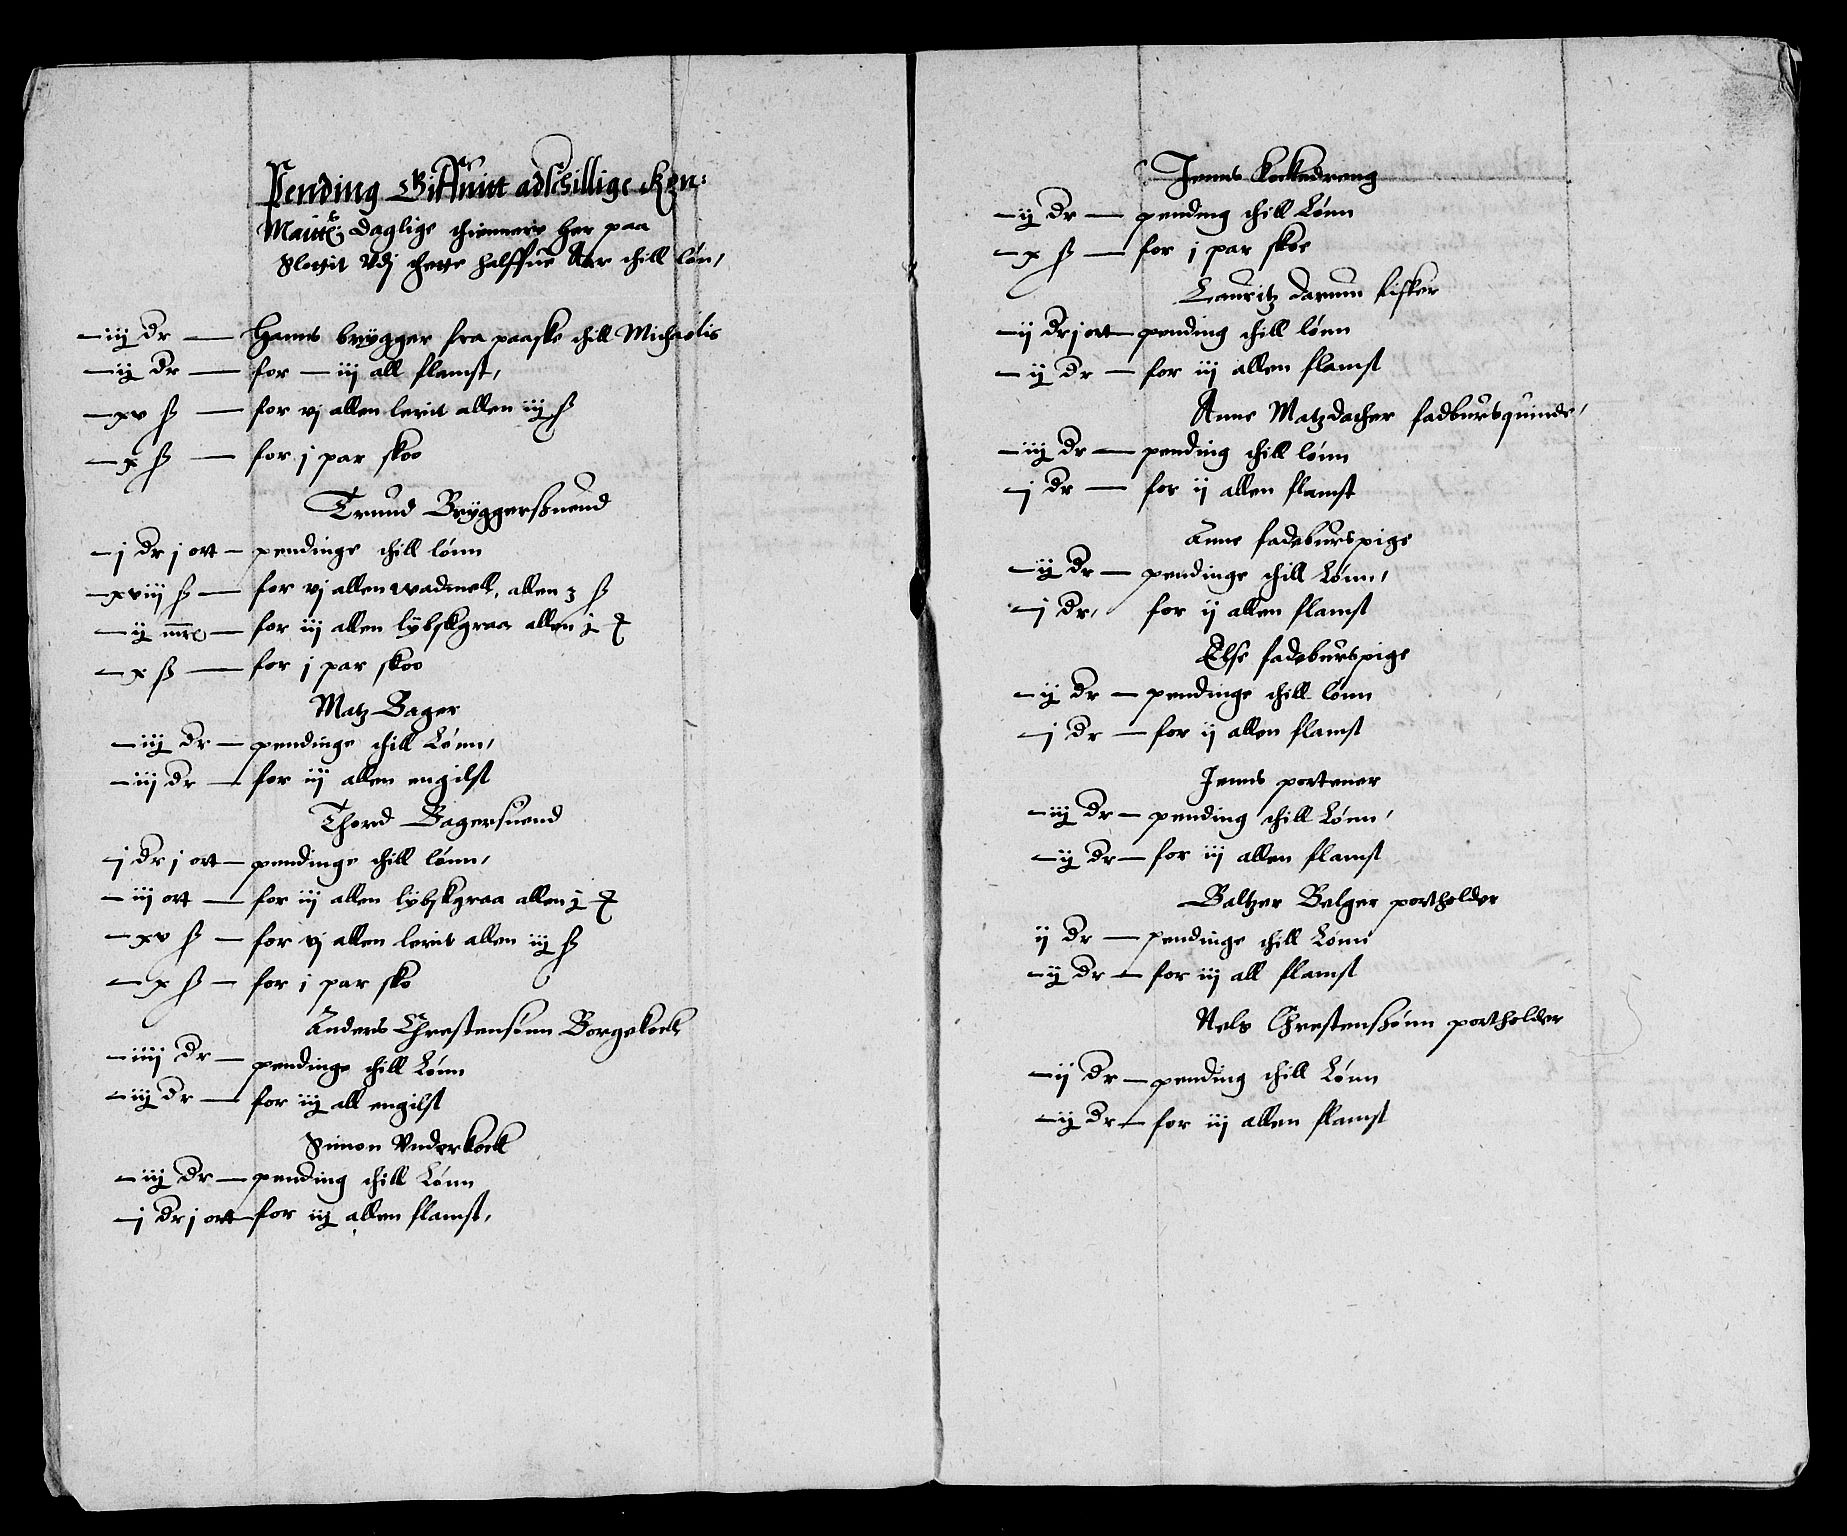 Pending Giffuitt adschillige Kon:
Maitts daglige thiennere her paa
Slottit Vdj thette halffue Aar thill løn,
iij dr — Hanns brygger fra paaske thill Michaelis
ij dr — for — iij all flamst,
xv ß — for vj allen lerit allen iij ß
x ß — for j par skoo
Trund Bryggersuend
j dr j ort — pendinge thill lønn
xviij ß — for vj allen wadmell, allen 3 ß
ij mrc — for iij allen lybskgraa allen j
x ß — for j par skoo
Matz Bager
iij dr — pendinge thill Lønn,
iij dr — for iij allen engilst
Thord Bagersuend
j dr j ort — pendinge thill lønn,
iij ort — for iij allen lybskgraa allen j
xv ß — for vj allen lerit allen iij ß
x ß — for j par sko
Anders Chrestensønn Borgekock
iiij dr — pendinge thill Lønn
iij dr — for iij all engilst
Simon Vnderkock
iij dr — pending thill Lønn
j dr j ort — for iij allen flamst,
Jenns Kockedreng
ij dr — pending thill Lønn
x ß — for j par skoe
Lauritz Darum fisker
ij dr j ort — pending thill lønn
ij dr — for iij allen flamst
Anne Matzdather fadbursquinde,
iij dr — pending thill lønn
j dr — for ij allen flamst
Anne fadeburspige
ij dr — pendinge thill Lønn,
j dr, for ij allen flamst
Else fadeburspige
ij dr — pendinge thill lønn
j dr — for ij allen flamst
Jenns portener
iij dr — pending thill Lønn,
ij dr — for iij allen flamst
Baltzer Belger portholder
ij dr — pendinge thill Lønn
ij dr — for iij all flamst
Nels Chrestensønn portholder
ij dr — pending thill Lønn
ij dr — for iij allen flamst